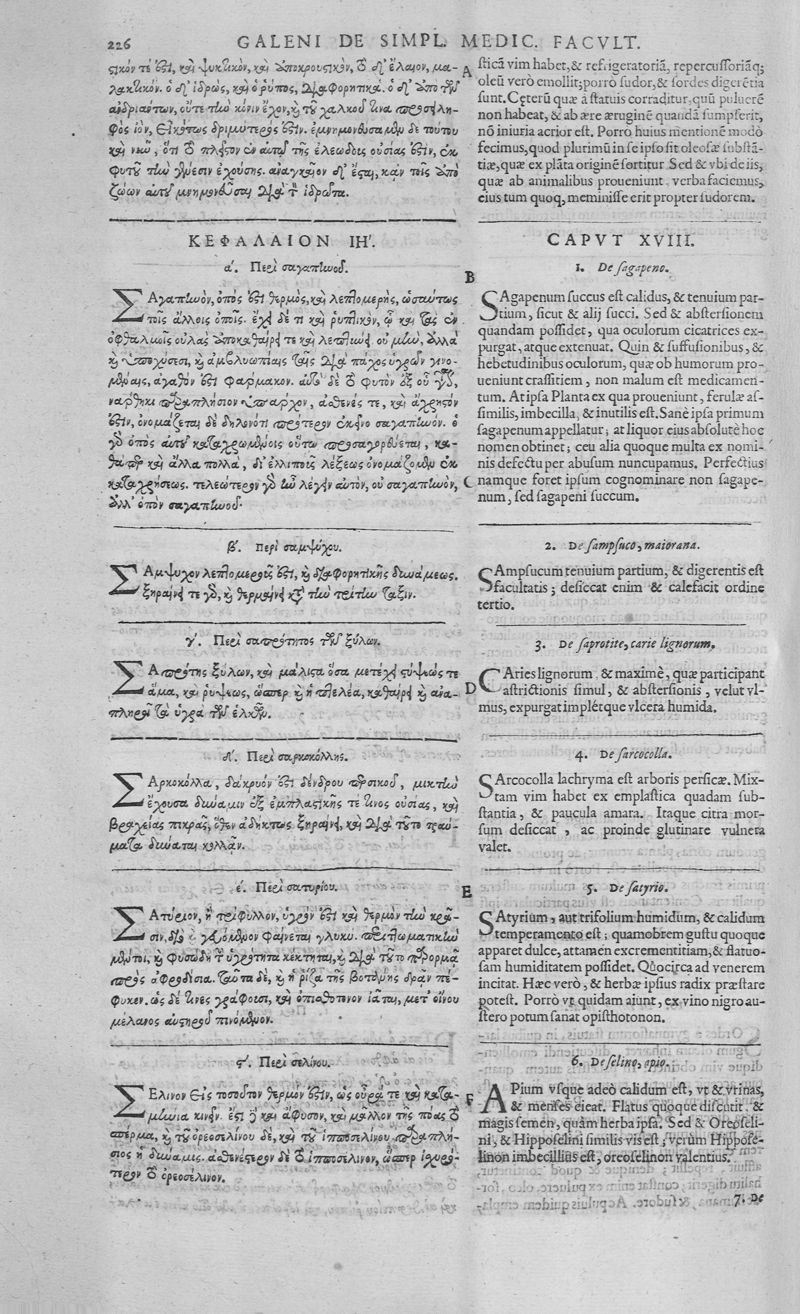 226 GALENI DE SIMPL. MEDIC. FACVLT.
ϛικόν τέ ἐϛι, καὶ ψυκτικὸν, καὶ ἀποκρουϛικὸν, τὸ δ' ἔλαιον, μα-
λακτικόν. ὁ δ' ἱδρὼς, καὶ ὁ ῥύπος, διαφορητικά. ὁ δ' ἀπὸ τῶν
ἀνδριάντων, οὔτε τὴν κόνιν ἔχων, καὶ τοῦ χαλκοῦ τινα προσειλη-
φὼς ἰὸν, εἰκότως δριμύτερός ἐϛιν. ἐμνημονεύσαμεν δὲ τούτου
καὶ νῦν, ὅτι τὸ πλεῖϛον ἐν αὐτῷ τῆς ἐλεώδους οὐσίας ἐϛὶν, ἐκ
φυτοῦ τὴν γένεσιν ἐχούσης. ἀναγκαῖον δ' ἔϛαι, κἀν τοῖς ἀπὸ
ζώων αὐτοῦ μνημονεῦσαι διὰ τὸν ἱδρῶτα.
ΚΕΦΑΛΑΙΟΝ ΙΗ'.
α'. Περὶ σαγαπηνοῦ.
ΣΑγαπηνὸν, ὀπός ἐϛι θερμὸς, καὶ λεπτομερὴς, ὡσαύτως
τοῖς ἄλλοις ὀποῖς. ἔχει δέ τι καὶ ῥυπτικὸν, ᾧ καὶ τὰς ἐν
ὀφθαλμοῖς οὐλὰς ἀποκαθαίρει τε καὶ λεπτύνει. οὐ μὴν, ἀλλὰ
καὶ ὑποχύσεσι, καὶ ἀμβλυωπίαις ταῖς διὰ πάχος ὑγρῶν γινο-
μέναις, ἀγαθόν ἐϛι φάρμακον. αὐτὸ δὲ τὸ φυτὸν ἐξ οὗ γίνε,
νάρθηκι παραπλήσιον ὑπάρχον, ἀσθενές τε, καὶ ἄχρηϛον
ἐϛὶν, ὀνομάζεται δὲ δηλονότι πρότερον ἐκεῖνο σαγαπηνόν. ὁ
γὰρ ὀπὸς αὐτοῦ καταχρωμένοις οὕτω προσαγορεύεται, κα-
θάπερ καὶ ἄλλα πολλὰ, δι' ἐλλιποῦς λέξεως ὀνομάζομεν ἐκ
καταχρήσεως. τελεώτερον γὰρ ἦν λέγειν αὐτὸν, οὐ σαγαπηνὸν,
ἀλλ' ὀπὸν σαγαπηνοῦ.
β'. Περὶ σαμψύχου.
ΣΑμψυχον λεπτομεροῦς ἐϛι, καὶ διαφορητικῆς δυνάμεως.
ξηραίνει τε γὰρ, καὶ θερμαίνει κατὰ τὴν τρίτην τάξιν.
γ'. Περὶ σαπρότητος τῶν ξύλων.
ΣΑπρότης ξύλων, καὶ μάλιϛα ὅσα μετέχει ϛύψεώς τε
ἅμα, καὶ ῥύψεως, ὥσπερ καὶ ἡ πτελέα, καθαίρει καὶ ἀνα-
πληροῖ τὰ ὑγρὰ τῶν ἑλκῶν.
δ'. Περὶ σαρκοκόλλης.
ΣΑρκοκόλλα, δάκρυόν ἐϛι δένδρου περσικοῦ, μικτὴν
ἔχουσα δύναμιν ἐξ ἐμπλαϛικῆς τέ τινος οὐσίας, καὶ
βραχείας πικρᾶς, ὅθεν ἀδήκτως ξηραίνει, καὶ διὰ τοῦτο τραύ-
ματα δύναται κολλᾶν.
ε'. Περὶ σατυρίου.
ΣΑτύριον, ἢ τρίφυλλον, ὑγρόν ἐϛι καὶ θερμὸν τὴν κρᾶ-
σιν, διὸ καὶ γευόμενον φαίνεται γλυκύ. περιττωματικὴν
μέντοι, καὶ φυσώδη τὴν ὑγρότητα κέκτηται, καὶ διὰ τοῦτο παρορμᾷ
πρὸς ἀφροδίσια. ταῦτα δὲ, καὶ ἡ ῥίζα τῆς βοτάνης δρᾶν πέ-
φυκεν. ὡς δέ τινες γράφουσι, καὶ ὀπισθότονον ἰᾶται, μετ' οἴνου
μέλανος αὐϛηροῦ πινόμενον.
ϛ'. Περὶ σελίνου.
ΣΕλινον εἰς τοσοῦτον θερμόν ἐϛιν, ὡς οὖρά τε καὶ κατα-
μήνια κινεῖν. ἔϛι δὲ καὶ ἄφυσον, καὶ μᾶλλον τῆς πόας τὸ
σπέρμα, καὶ τοῦ ὀρεοσελίνου δὲ, καὶ τοῦ ἱπποσελίνου παραπλή-
σιος ἡ δύναμις. ἀσθενέϛερον δὲ τὸ ἱπποσέλινον, ὥσπερ ἰσχυρό-
τερον τὸ ὀρεοσέλινον.
A
B
C
D
E
F
ſticã vim habet, & refrigeratoriã, repercuſſoriãq;
oleũ verò emollit; porrò ſudor, & ſordes digerẽtia
ſunt. Cęterũ quæ à ſtatuis corraditur, quũ puluerẽ
non habeat, & ab ære æruginẽ quandã ſumpſerit,
nõ iniuria acrior eſt. Porrò huius mentionẽ modò
fecimus, quod plurimũ in ſe ipſo ſit oleoſæ ſubſtã-
tiæ, quæ ex plãta originẽ ſortitur Sed & vbi de iis,
quæ ab animalibus proueniunt verba faciemus,
eius tum quoq, meminiſſe erit propter ſudorem.
CAPVT XVIII.
1. De ſagapeno.
SAgapenum ſuccus eſt calidus, & tenuium par-
tium, ſicut & alij ſucci. Sed & abſterſionem
quandam poſſidet, qua oculorum cicatrices ex-
purgat, atque extenuat. Quin & ſuffuſionibus, &
hebetudinibus oculorum, quæ ob humorum pro-
ueniunt craſſitiem, non malum eſt medicamen-
tum. At ipſa Planta ex qua proueniunt, ferulæ aſ-
ſimilis, imbecilla, & inutilis eſt. Sanè ipſa primum
ſagapenum appellatur; at liquor eius abſolutè hoc
nomen obtinet; ceu alia quoque multa ex nomi-
nis defectu per abuſum nuncupamus. Perfectius
namque foret ipſum cognominare non ſagape-
num, ſed ſagapeni ſuccum.
2. De ſampſuco, maiorana.
SAmpſucum tenuium partium, & digerentis eſt
facultatis; deſiccat enim & calefacit ordine
tertio.
3. De ſaprotite, carie lignorum.
CAries lignorum & maximè, quæ participant
aſtrictionis ſimul, & abſterſionis, velut vl-
mus, expurgat implétque vlcera humida.
4. De ſarcocolla.
SArcocolla lachryma eſt arboris perſicæ. Mix-
tam vim habet ex emplaſtica quadam ſub-
ſtantia, & paucula amara. Itaque citra mor-
ſum deſiccat, ac proinde glutinare vulnera
valet.
5. De ſatyrio.
SAtyrium, aut trifolium humidum, & calidum
temperamento eſt; quamobrem guſtu quoque
apparet dulce, attamen excrementitiam, & flatuo-
ſam humiditatem poſſidet. Quocirca ad venerem
incitat. Hæc verò, & herbæ ipſius radix præſtare
poteſt. Porrò vt quidam aiunt, ex vino nigro au-
ſtero potum ſanat opiſthotonon.
6. De ſelino, apio.
APium vſque adeò calidum eſt, vt & vrinas,
& menſes eicat. Flatus quoque diſcutit & 
magis ſemen, quàm herba ipſa. Sed & Oreoſeli-
ni, & Hippoſelini ſimilis vis eſt, verùm Hippoſe-
linon imbecillius eſt, oreoſelinon valentius.
7. De